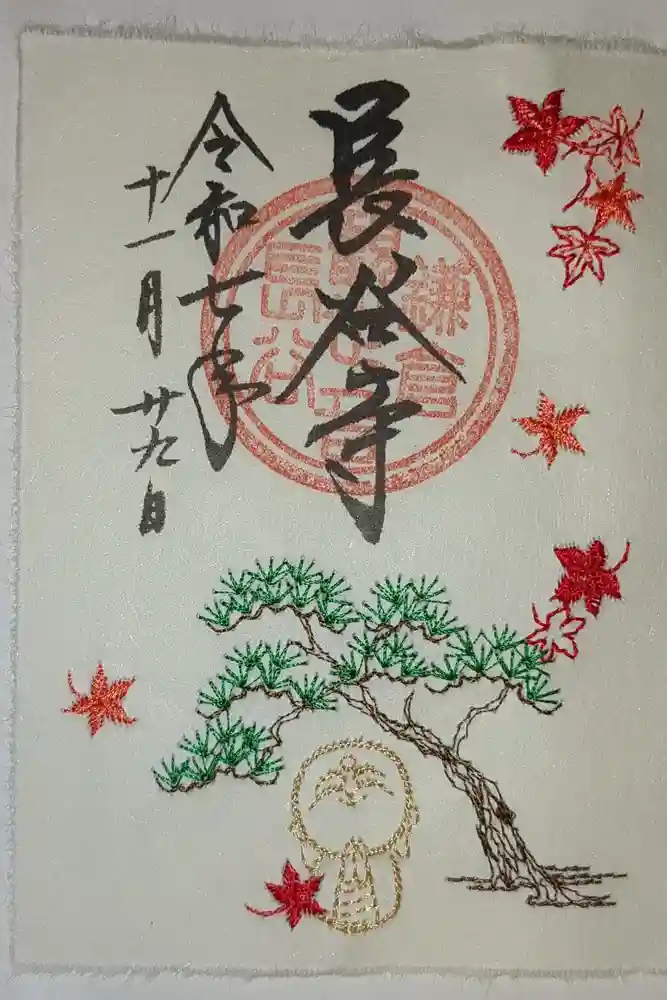 長谷寺
令和七年
十一月廿九日
鎌倉
長谷